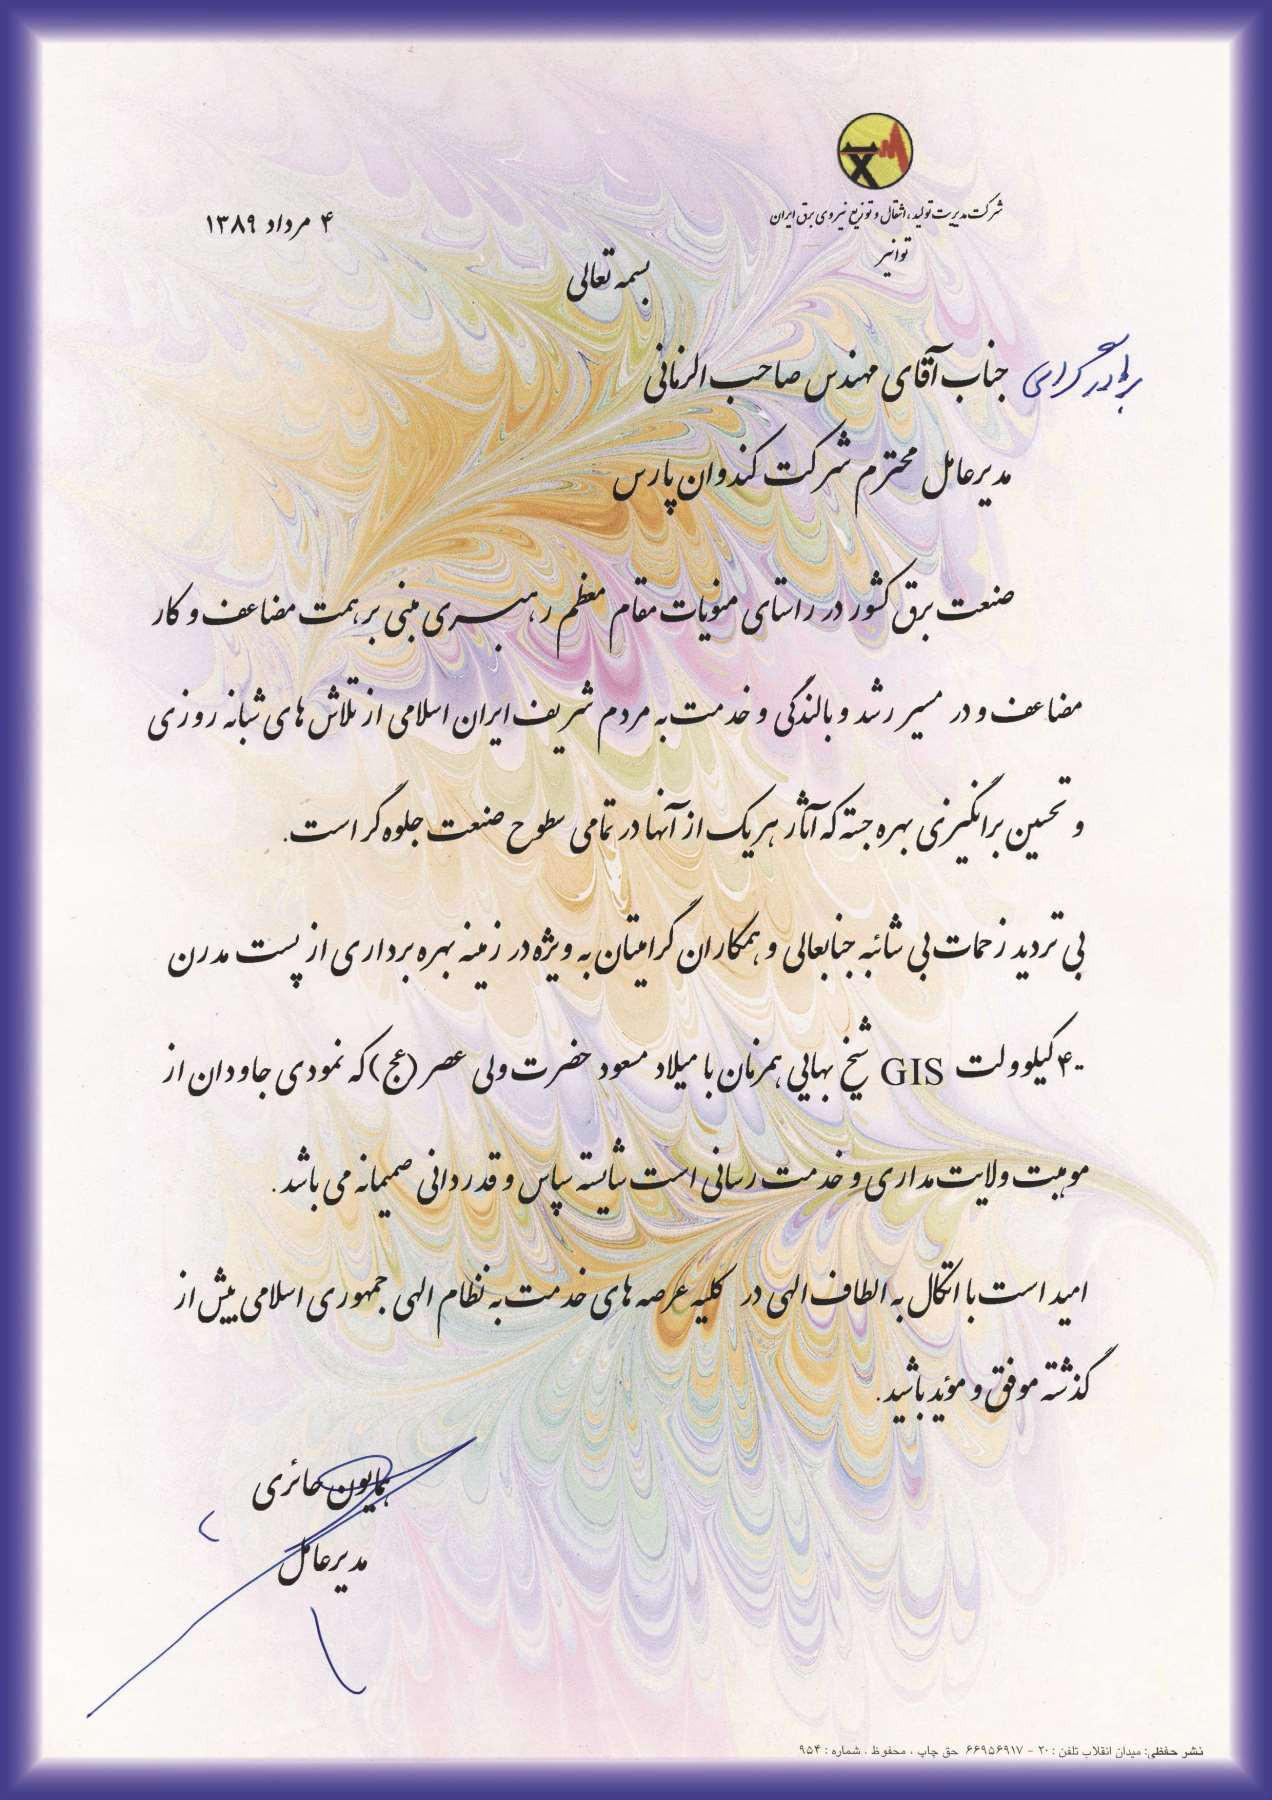 شرکت مدیریت تولید، انتقال و توزیع نیروی برق ایران
توانیر
۴ مرداد ۱۳۸۹
بسمه تعالی
برادر گرامی جناب آقای مهندس صاحب الزمانی
مدیرعامل محترم شرکت کندوان پارس
صنعت برق کشور در راستای منویات مقام معظم رهبری مبنی بر همت مضاعف و کار
مضاعف و در مسیر رشد و بالندگی و خدمت به مردم شریف ایران اسلامی از تلاش های شبانه روزی
و تحسین برانگیزی بهره جسته که آثار هر یک از آنها در تمامی سطوح صنعت جلوه گر است.
بی تردید زحمات بی شائبه جنابعالی و همکاران گرامیتان به ویژه در زمینه بهره برداری از پست مدرن
۴۰۰ کیلوولت GIS شیخ بهایی همزمان با میلاد مسعود حضرت ولی عصر (عج) که نمودی جاودان از
موهبت ولایت مداری و خدمت رسانی است شایسته سپاس و قدردانی صمیمانه می باشد.
امید است با اتکال به الطاف الهی در کلیه عرصه های خدمت به نظام الهی جمهوری اسلامی بیش از
گذشته موفق و مؤید باشید.
همایون حائری
مدیرعامل
نشر حفظی: میدان انقلاب تلفن: ۲۰ - ۶۶۹۵۶۹۱۷ حق چاپ، محفوظ، شماره: ۹۵۴